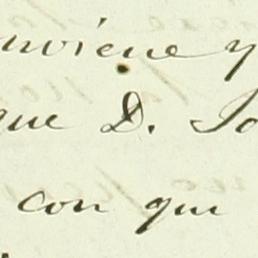 nviene y
que D. Jo
con que